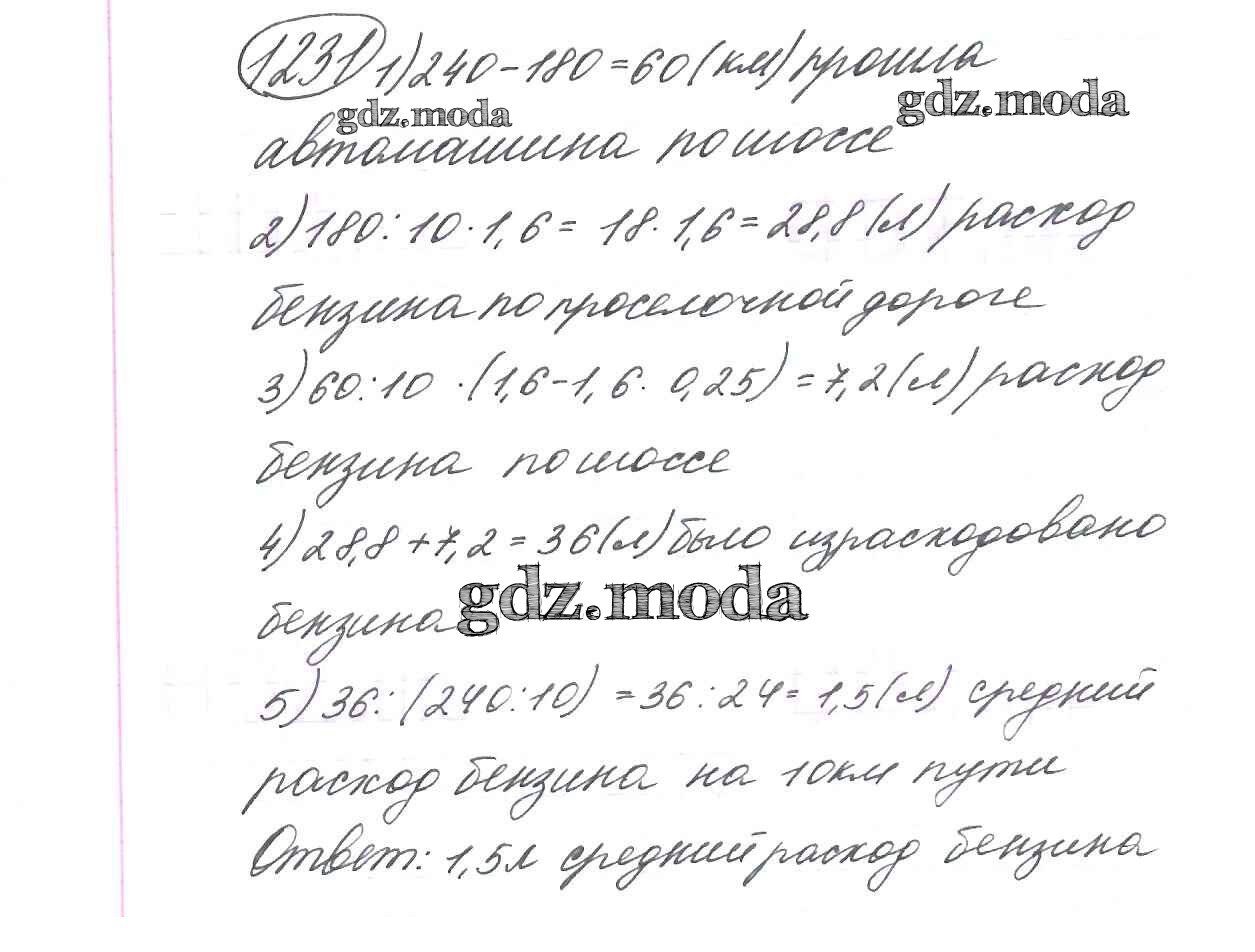 1231 1) 240 - 180 = 60 (км) прошла
gdz.moda
gdz.moda
автомашина по шоссе
2) 180 : 10 · 1,6 = 18 · 1,6 = 28,8 (л) расход
бензина по проселочной дороге
3) 60 : 10 · (1,6 - 1,6 · 0,25) = 7,2 (л) расход
бензина по шоссе
4) 28,8 + 7,2 = 36 (л) было израсходовано
бензина
gdz.moda
5) 36 : (240 : 10) = 36 : 24 = 1,5 (л) средний
расход бензина на 10 км пути
Ответ: 1,5л средний расход бензина